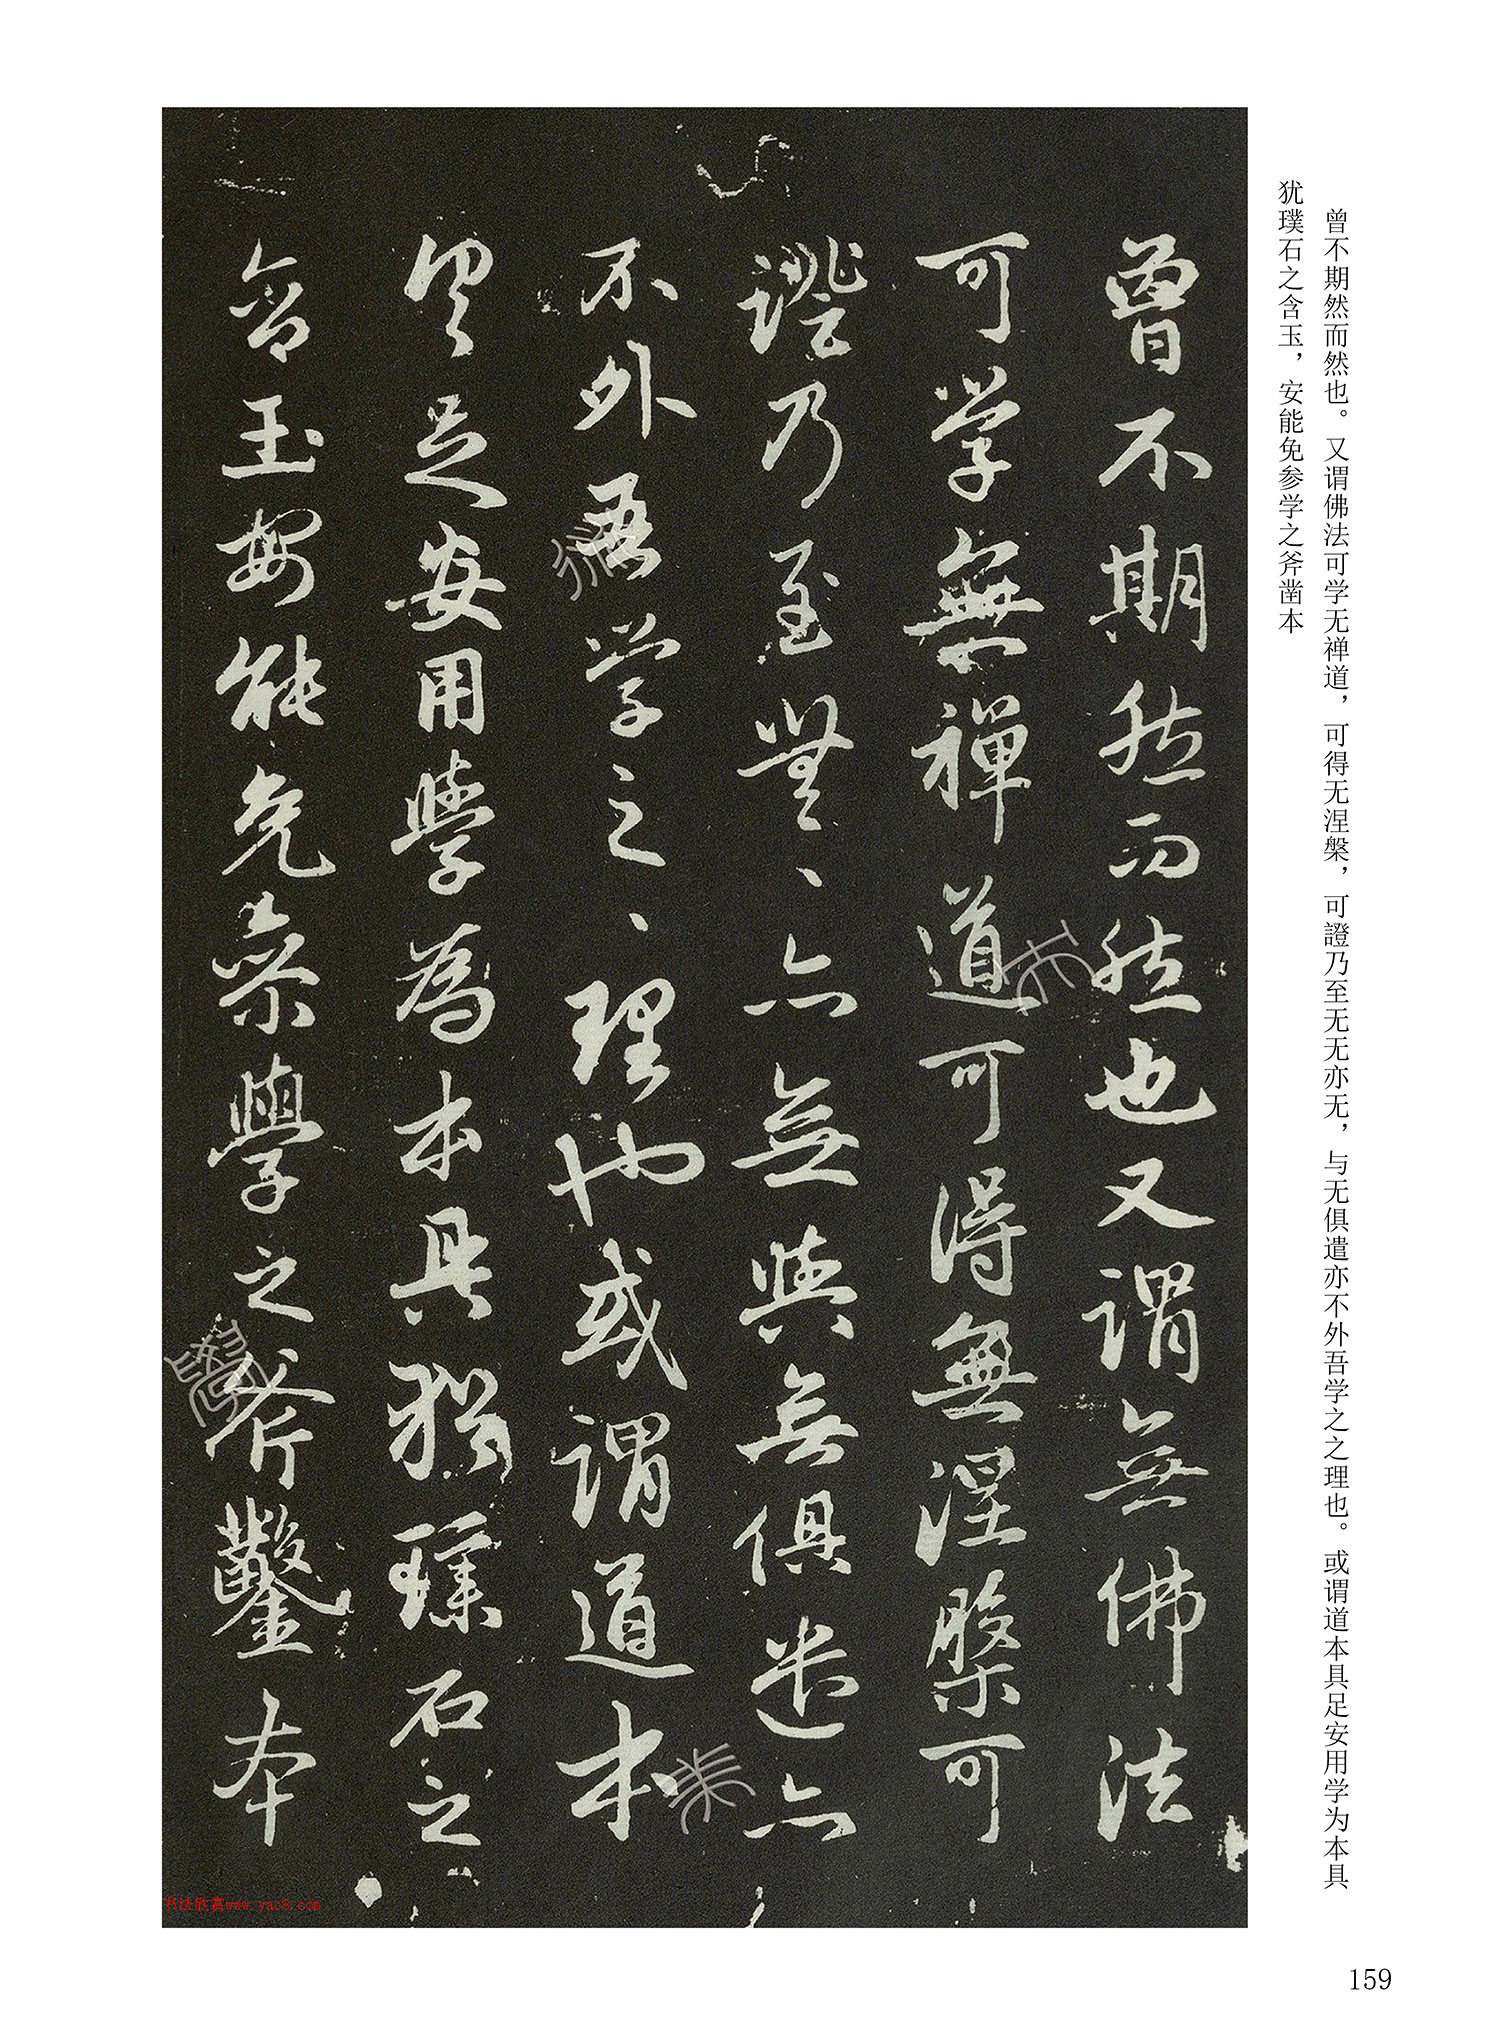 曾不期然而然也。又谓佛法可学无禅道，可得无涅槃，可證乃至无无亦无，与无俱遣亦不外吾学之之理也。或谓道本具足安用学为本具
犹璞石之含玉，安能免参学之斧凿本
曾不期然而然也又謂無佛法
可學無禪道可得無涅槃可
證乃至無、亦無與無俱遣亦
不外吾學之、理也或謂道本
具足安用學為本具猶璞石之
含玉安能免叅學之斧鑿本
书法欣赏www.yac8.com
159